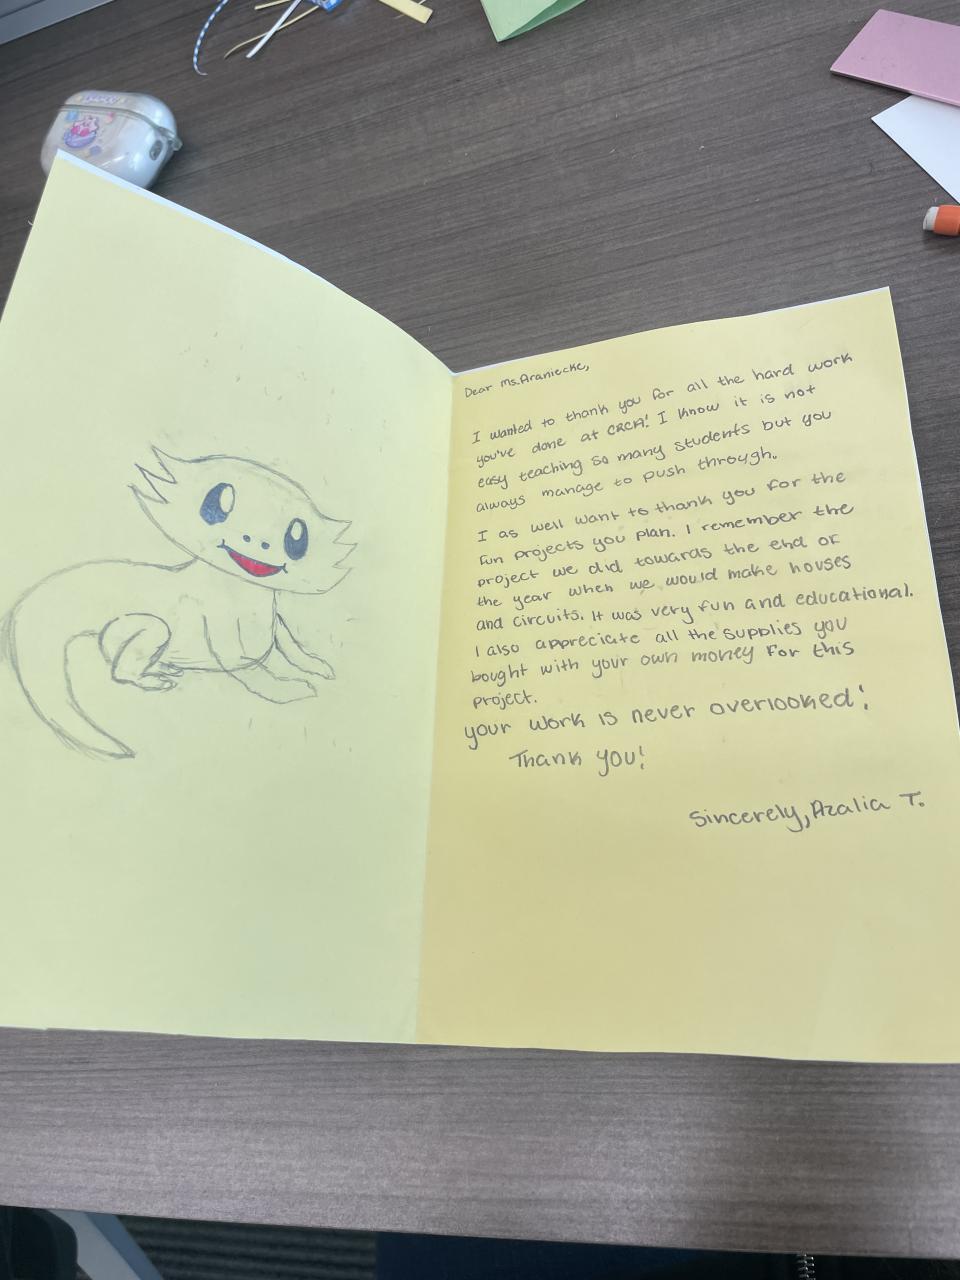 Dear Ms.Araniecke,
I wanted to thank you for all the hard work
you've done at CRCA! I know it is not
easy teaching so many students but you
always manage to push through.
I as well want to thank you for the
fun projects you plan. I remember the
project we did towards the end of
the year when we would make houses
and circuits. It was very fun and educational.
I also appreciate all the supplies you
bought with your own money for this
project.
your work is never overlooked!
Thank you!
Sincerely, Azalia T.